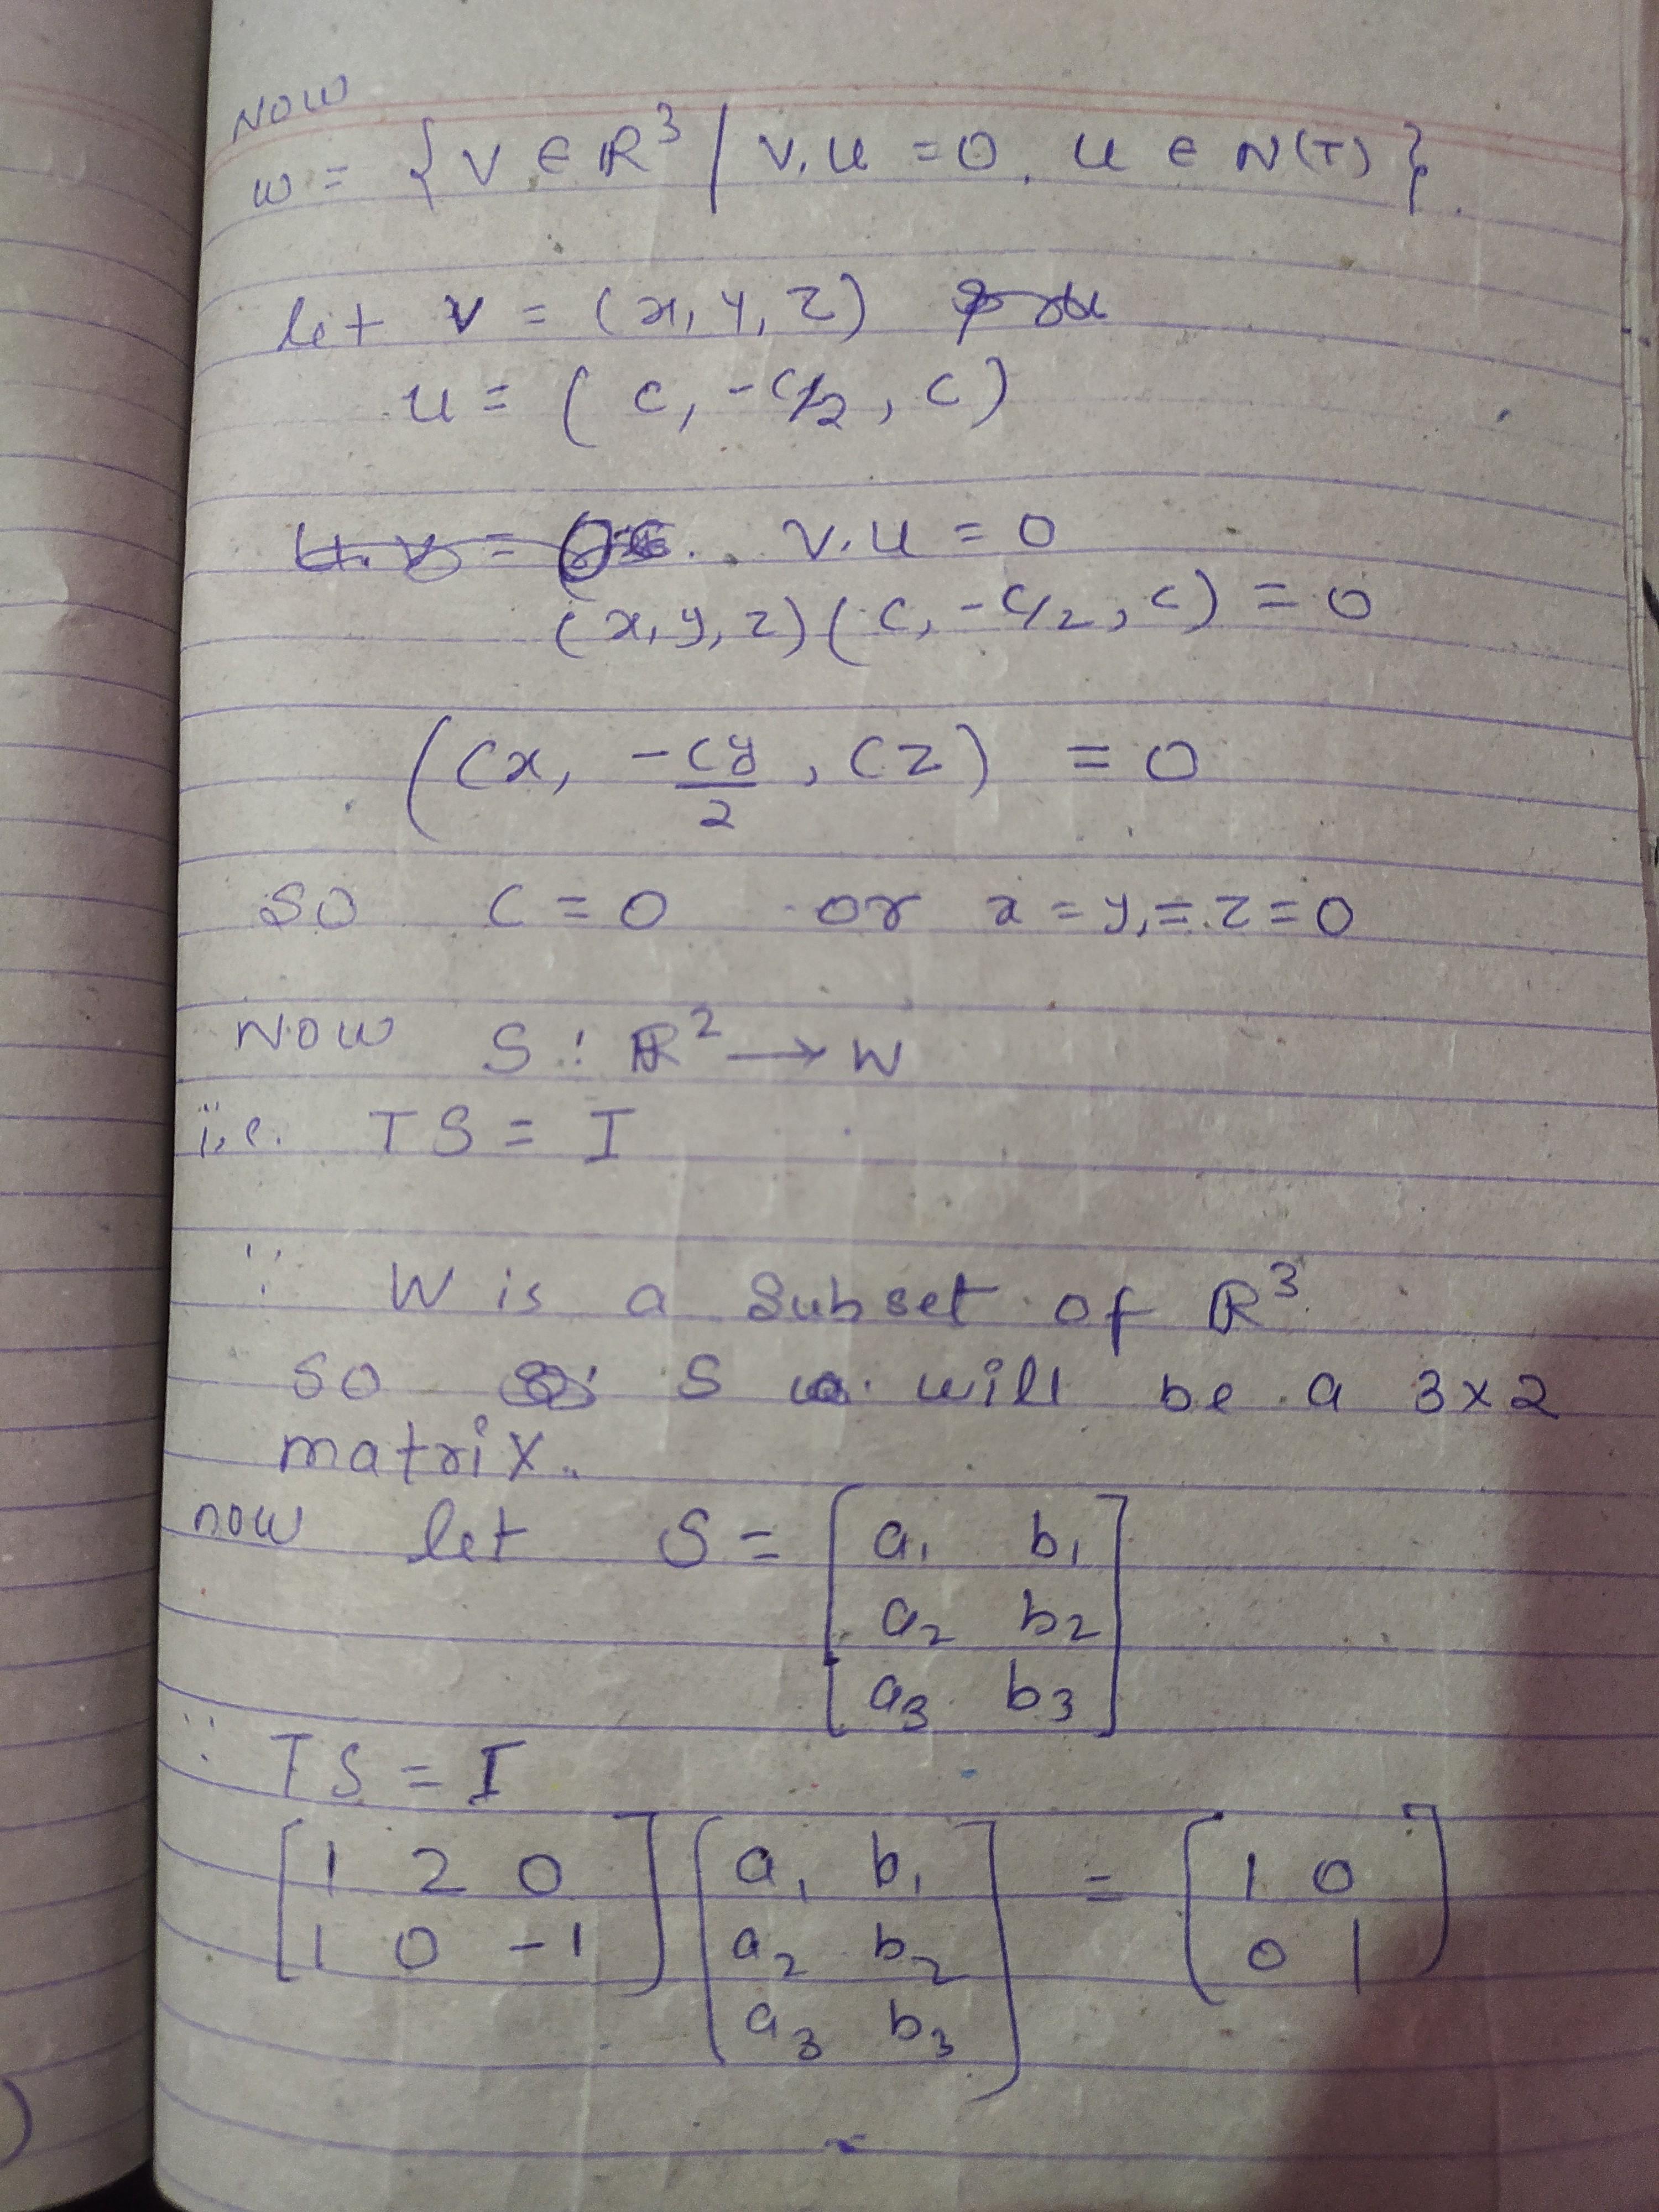 NOW
W = { V ∈ ℝ³ / V.U = 0, U ∈ N(T) }.
let V = (x, y, z)
U = ( c, -c/2, c)
V.U = 0
(x, y, z) ( c, -c/2, c) = 0
(cx, -cy/2, cz) = 0
SO C = 0 or x = y, = z = 0
NOW S : ℝ² → W
i.e. TS = I
∵ W is a subset of ℝ³.
SO S will be a 3x2
matrix.
now let S = [ a₁ b₁
a₂ b₂
a₃ b₃ ]
∵ TS = I
[ 1 2 0 [ a₁ b₁ = [ 1 0
1 0 -1 ] a₂ b₂ 0 1 ]
a₃ b₃ ]